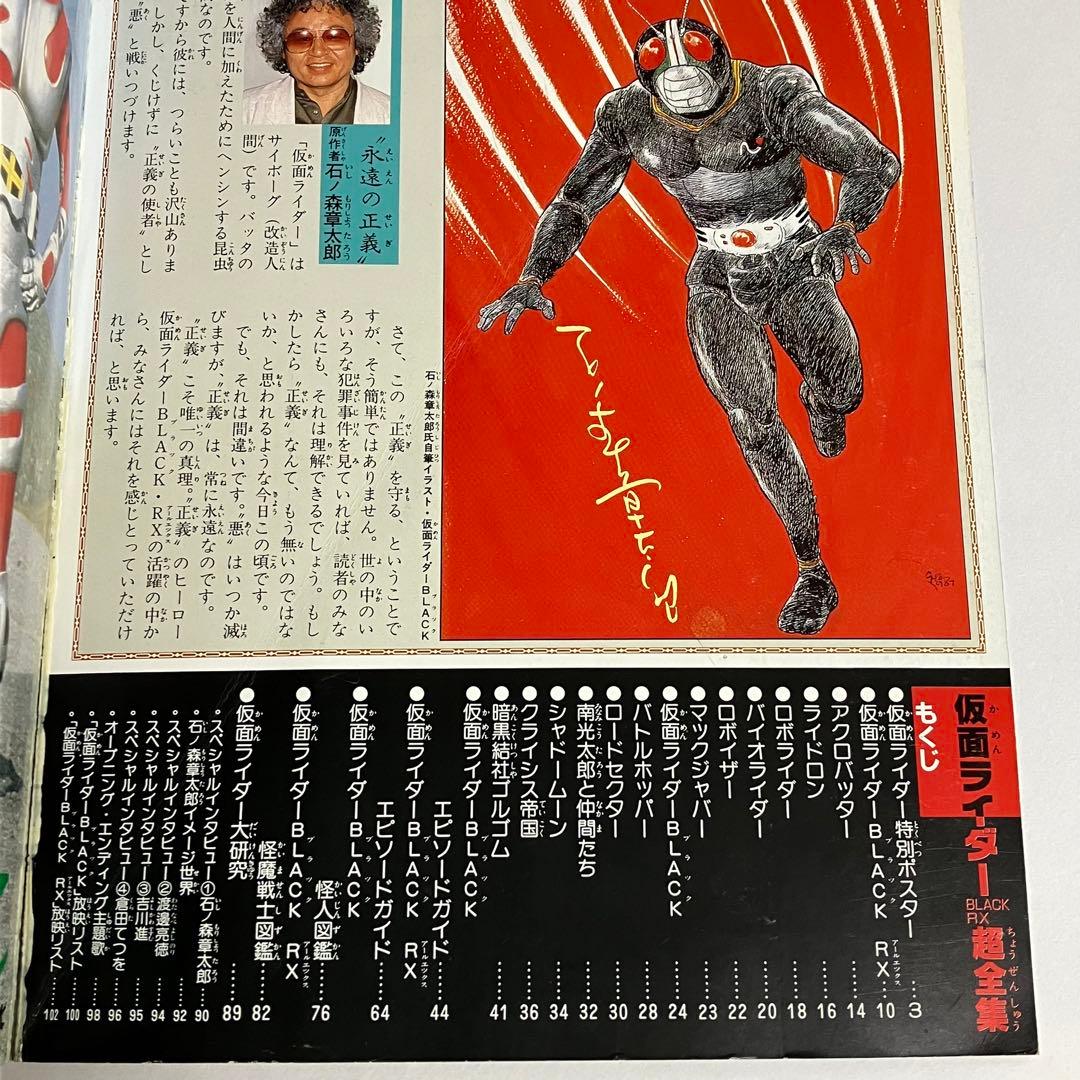 〝永遠の正義〟
原作者 石ノ森章太郎
「仮面ライダー」は
サイボーグ(改造人
間)です。バッタの
を人間に加えたためにヘンシンする昆虫
なのです。
ですから彼には、つらいことも沢山ありま
しかし、くじけずに〝正義の使者〟とし
〝悪〟と戦いつづけます。
さて、この〝正義〟を守る、ということで
すが、そう簡単ではありません。世の中のい
ろいろな犯罪事件を見ていれば、読者のみな
さんにも、それは理解できるでしょう。もし
かしたら〝正義〟なんて、もう無いのではな
いか、と思われるような今日この頃です。
でも、それは間違いです。〝悪〟はいつか滅
びますが、〝正義〟は、常に永遠なのです。
〝正義〟こそ唯一の真理。〝正義〟のヒーロー
仮面ライダーBLACK・RXの活躍の中か
ら、みなさんにはそれを感じとっていただけ
れば、と思います。
石ノ森章太郎氏自筆イラスト・仮面ライダーBLACK
石ノ森章太郎
仮面ライダーBLACK RX超全集
もくじ
●仮面ライダー特別ポスター……3
●仮面ライダーBLACK RX……10
●アクロバッター……14
●ライドロン……16
●ロボライダー……18
●バイオライダー……20
●ロボイザー……22
●マックジャバー……23
●仮面ライダーBLACK……24
●バトルホッパー……28
●ロードセクター……30
●南光太郎と仲間たち……32
●シャドームーン……34
●クライシス帝国……36
●暗黒結社ゴルゴム……41
●仮面ライダーBLACK RX
エピソードガイド……44
●仮面ライダーBLACK
エピソードガイド……64
●仮面ライダーBLACK
怪人図鑑……76
●仮面ライダーBLACK RX
怪魔戦士図鑑……82
●仮面ライダー大研究……89
●スペシャルインタビュー①石ノ森章太郎……90
●石ノ森章太郎イメージ世界……92
●スペシャルインタビュー②渡邊亮徳……94
●スペシャルインタビュー③吉川進……95
●スペシャルインタビュー④倉田てつを……96
●オープニング・エンディング主題歌……98
●「仮面ライダーBLACK」放映リスト……100
●「仮面ライダーBLACK RX」放映リスト……102